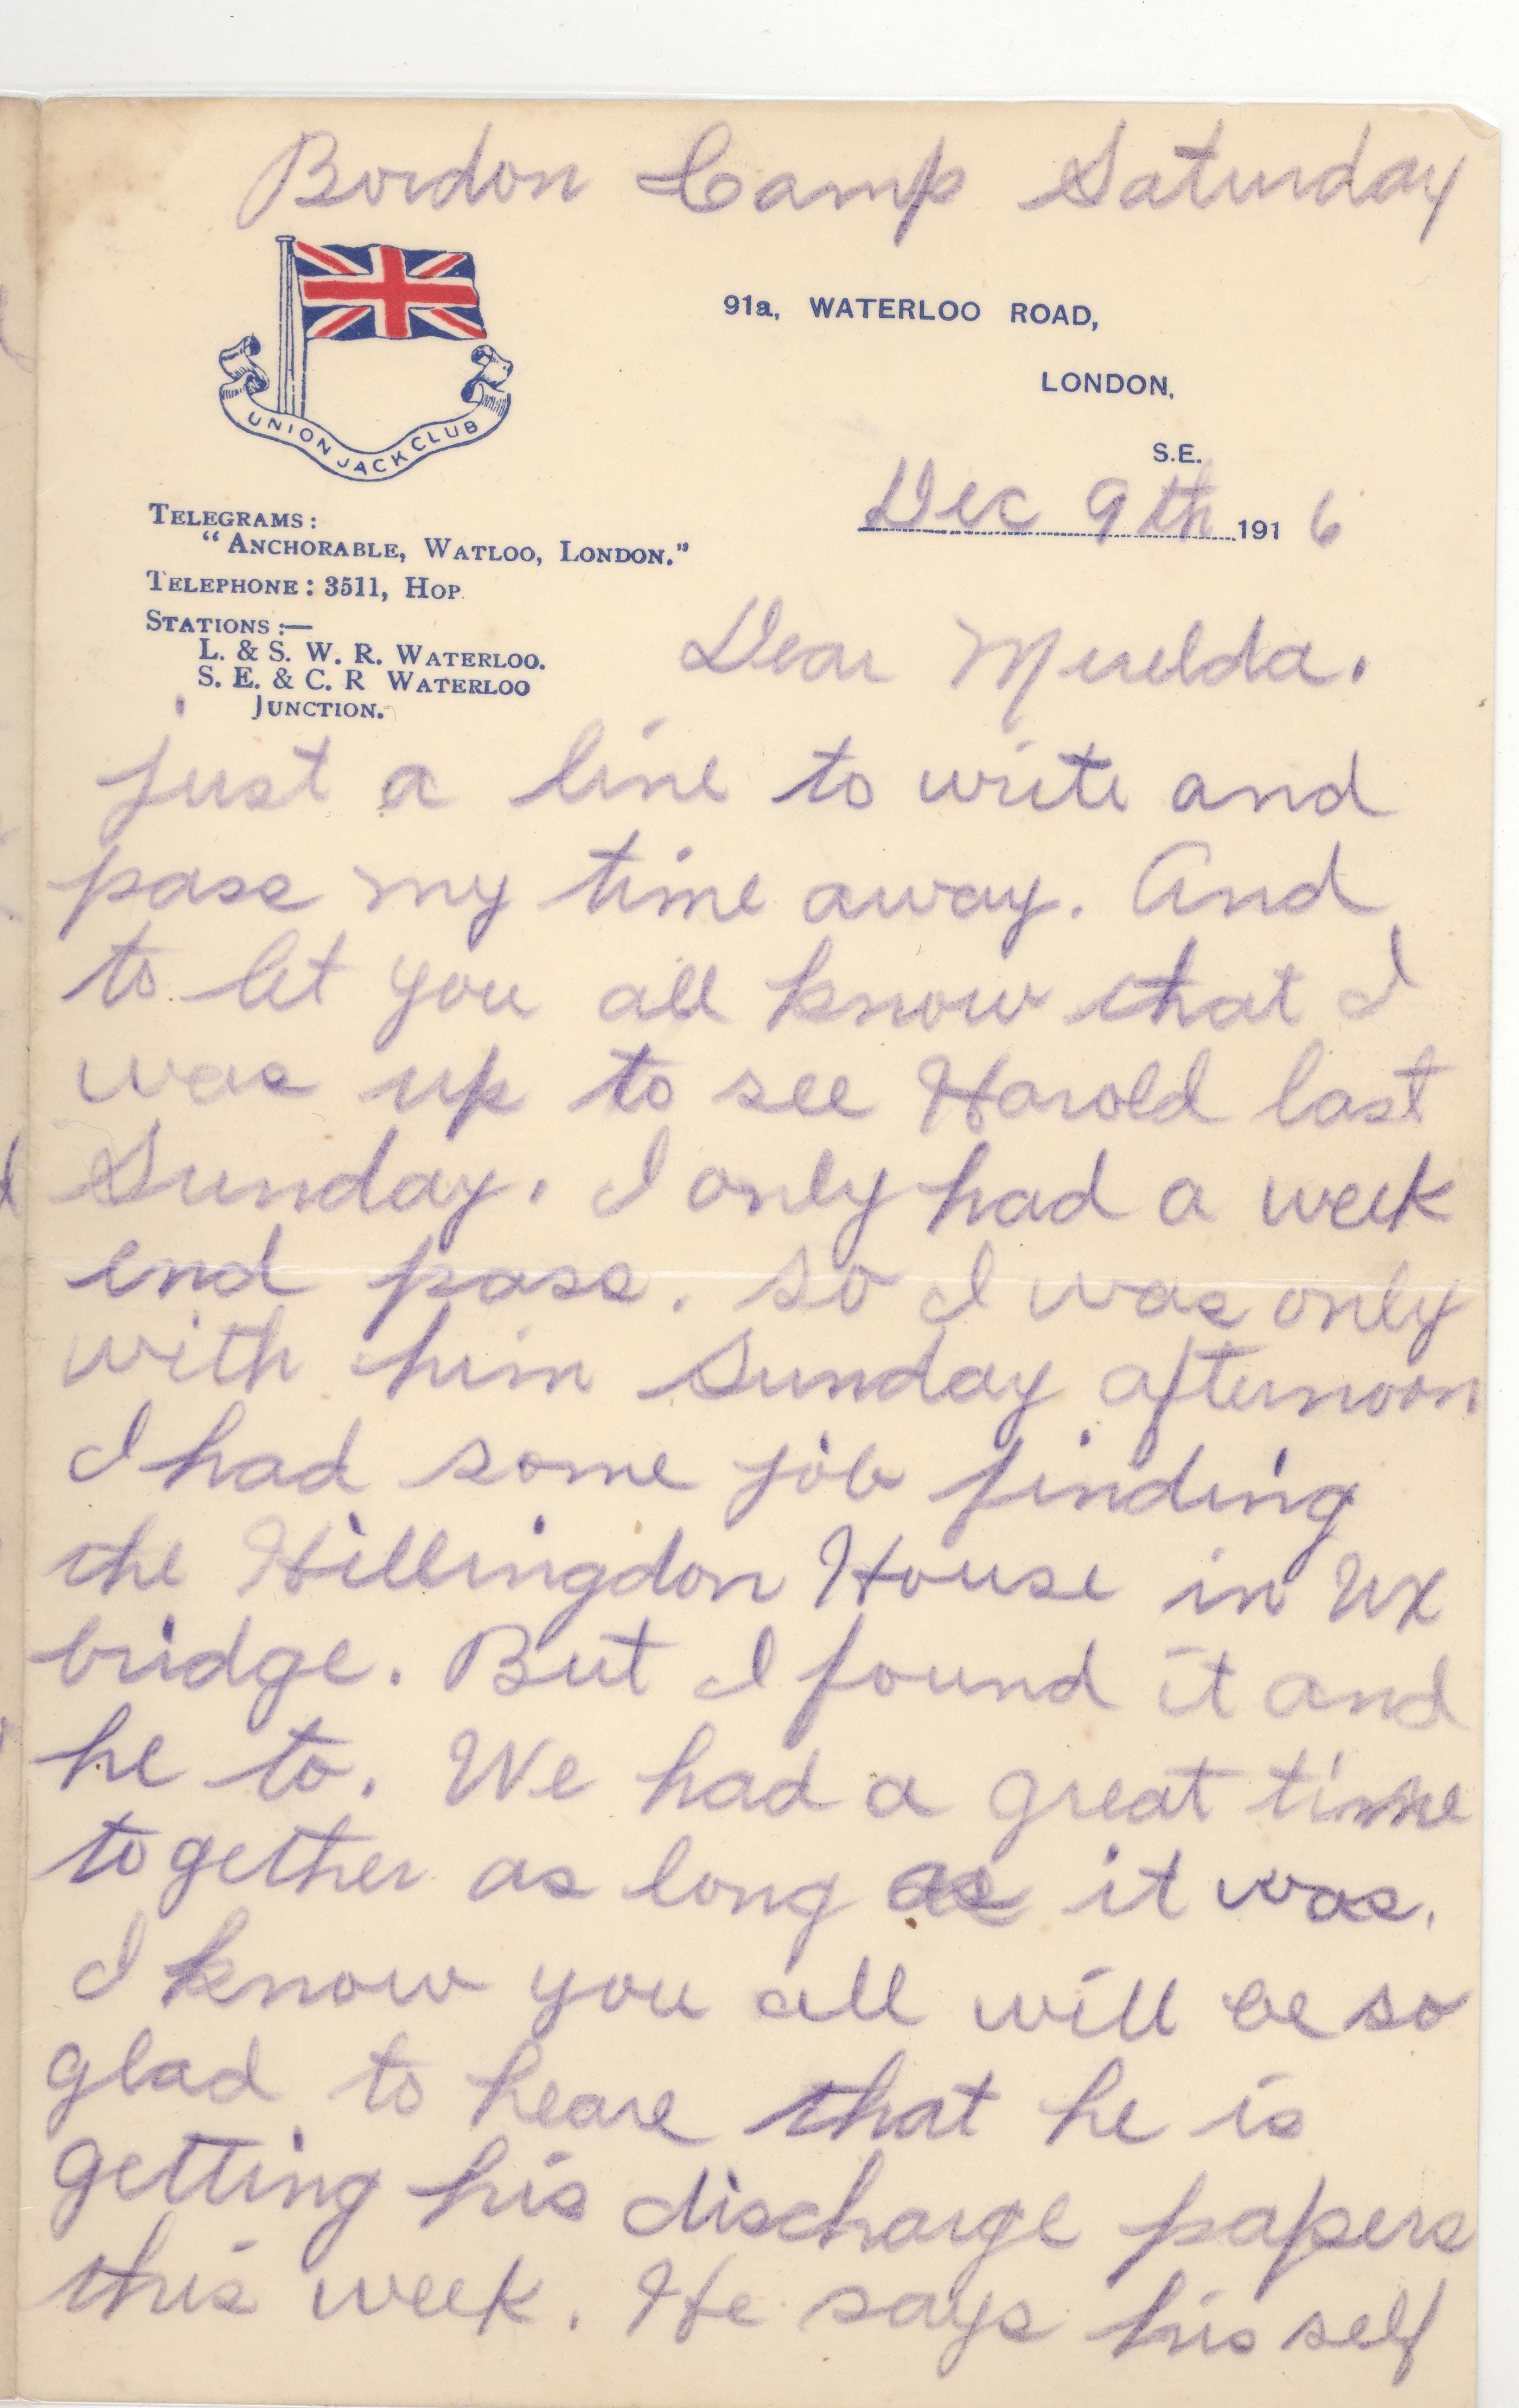 Bordon Camp Saturday
UNION JACK CLUB
91a, WATERLOO ROAD,
LONDON,
S.E.
Dec 9th 1916
TELEGRAMS:
"ANCHORABLE, WATLOO, LONDON."
TELEPHONE: 3511, HOP.
STATIONS:—
L. & S. W. R. WATERLOO.
S. E. & C. R WATERLOO
JUNCTION.
Dear Murelda.
just a line to write and
pass my time away. And
to let you all know that I
was up to see Harold last
Sunday. I only had a week
end pass. so I was only
with him Sunday afternoon
I had some job finding
the Hillingdon House in Ux
bridge. But I found it and
he to. We had a great time
together as long as it was.
I know you all will be so
glad to heare that he is
getting his discharge papers
this week. He says his self